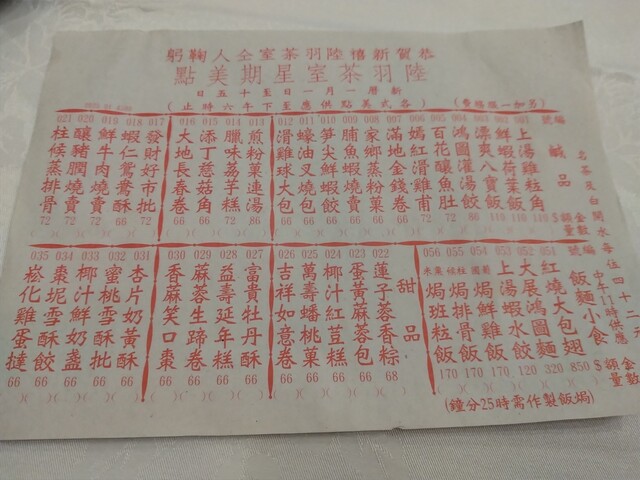 恭賀新禧陸羽茶室仝人鞠躬
陸羽茶室星期美點
新曆一月一日至十五日
(另加一服務費)
(各式美點供應至下午六時止)
茗茶及白開水每位四十二
編號
鹹品
金額 數量
$
001 上湯雞粒角 110
002 鮮蝦荷葉飯 110
003 八寶飯
004 鴻圖灌湯餃 86
005 百花釀魚肚 72
006 嫣紅滑雞甫 72
007 滿地金錢卷 72
008 家鄉蒸粉果 66
009 脯魚蝦燒賣 66
010 筍尖鮮蝦餃 66
011 蠔油叉燒包 66
012 滑雞球大包 66
013 煎粉菓連湯 86
014 臘味荔芋糕 72
015 添丁菇角
016 大地長春卷
017 發財好市批 72
018 蝦仁鴛鴦酥 66
019 鮮牛肉燒賣 72
020 釀豬膶燒賣 72
021 柱候蒸排骨 72
甜品
022 蓮子蓉香粽 68
023 蛋黃蔴蓉包 66
024 椰汁紅荳糕 66
025 萬壽蟠桃菓 66
026 吉祥如意卷 66
027 富貴牡丹酥 66
028 益壽延年糕 66
029 蔴蓉生蹄卷 66
030 香蔴笑口棗 66
031 杏片奶黃酥 66
032 蜜桃雪酥批 66
033 椰汁鮮奶盞 66
034 棗坭雪酥餃 66
035 崧化雞蛋撻 66
編號
飯麵小食
中午11時供應
金額 數量
$
紅燒大包翅 850
051 大展鴻圖麵 320
052 上湯蝦水餃 120
054 葡國焗鮮雞飯 170
055 焗排飯 170
056 粟米焗班粒飯 170
(焗飯製作需時25分鐘)